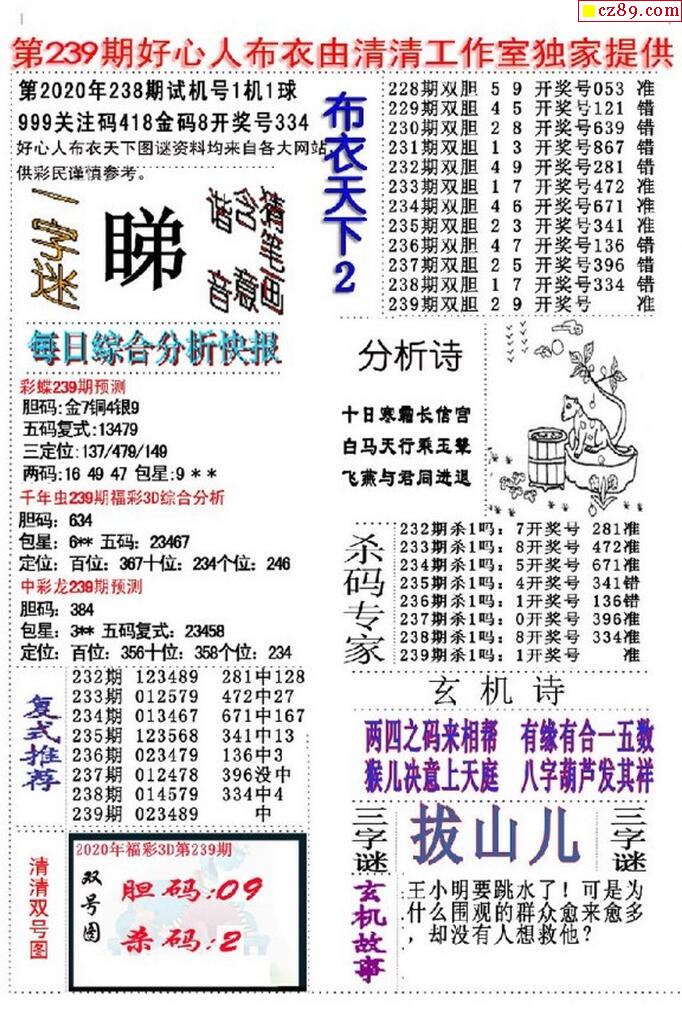 cz89.com
第239期好心人布衣由清清工作室独家提供
第2020年238期试机号1机1球
999关注码418金码8开奖号334
好心人布衣天下图谜资料均来自各大网站,
供彩民谨慎参考。
一字迷
睇
猪笔画
含意
谐音
布衣天下2
228期双胆 5 9 开奖号053 准
229期双胆 4 5 开奖号121 错
230期双胆 2 8 开奖号639 错
231期双胆 1 3 开奖号867 错
232期双胆 4 9 开奖号281 错
233期双胆 1 7 开奖号472 准
234期双胆 4 6 开奖号671 准
235期双胆 2 3 开奖号341 准
236期双胆 4 7 开奖号136 错
237期双胆 2 5 开奖号396 错
238期双胆 1 7 开奖号334 错
239期双胆 2 9 开奖号 准
每日综合分析快报
彩蝶239期预测
胆码:金7铜4银9
五码复式:13479
三定位:137/479/149
两码:16 49 47 包星:9 * *
千年虫239期福彩3D综合分析
胆码: 634
包星: 6** 五码: 23467
定位: 百位: 367十位: 234个位: 246
中彩龙239期预测
胆码: 384
包星: 3** 五码复式: 23458
定位: 百位: 356十位: 358个位: 234
分析诗
十日寒霜长信宫
白马天行乘玉辇
飞燕与君同进退
杀码专家
232期杀1吗: 7开奖号 281准
233期杀1吗: 8开奖号 472准
234期杀1吗: 5开奖号 671准
235期杀1吗: 4开奖号 341错
236期杀1吗: 1开奖号 136错
237期杀1吗: 0开奖号 396准
238期杀1吗: 8开奖号 334准
239期杀1吗: 1开奖号 准
复式推荐
232期 123489 281中128
233期 012579 472中27
234期 013467 671中167
235期 123568 341中13
236期 023479 136中3
237期 012478 396没中
238期 014579 334中4
239期 023489 中
玄机诗
两四之码来相帮 有缘有合一五数
猴儿决意上天庭 八字葫芦发其祥
三字谜
拔山儿
三字谜
清清双号图
2020年福彩3D第239期
双号图
胆码:09
杀码:2
玄机故事
王小明要跳水了！可是为
什么围观的群众愈来愈多
，却没有人想救他?